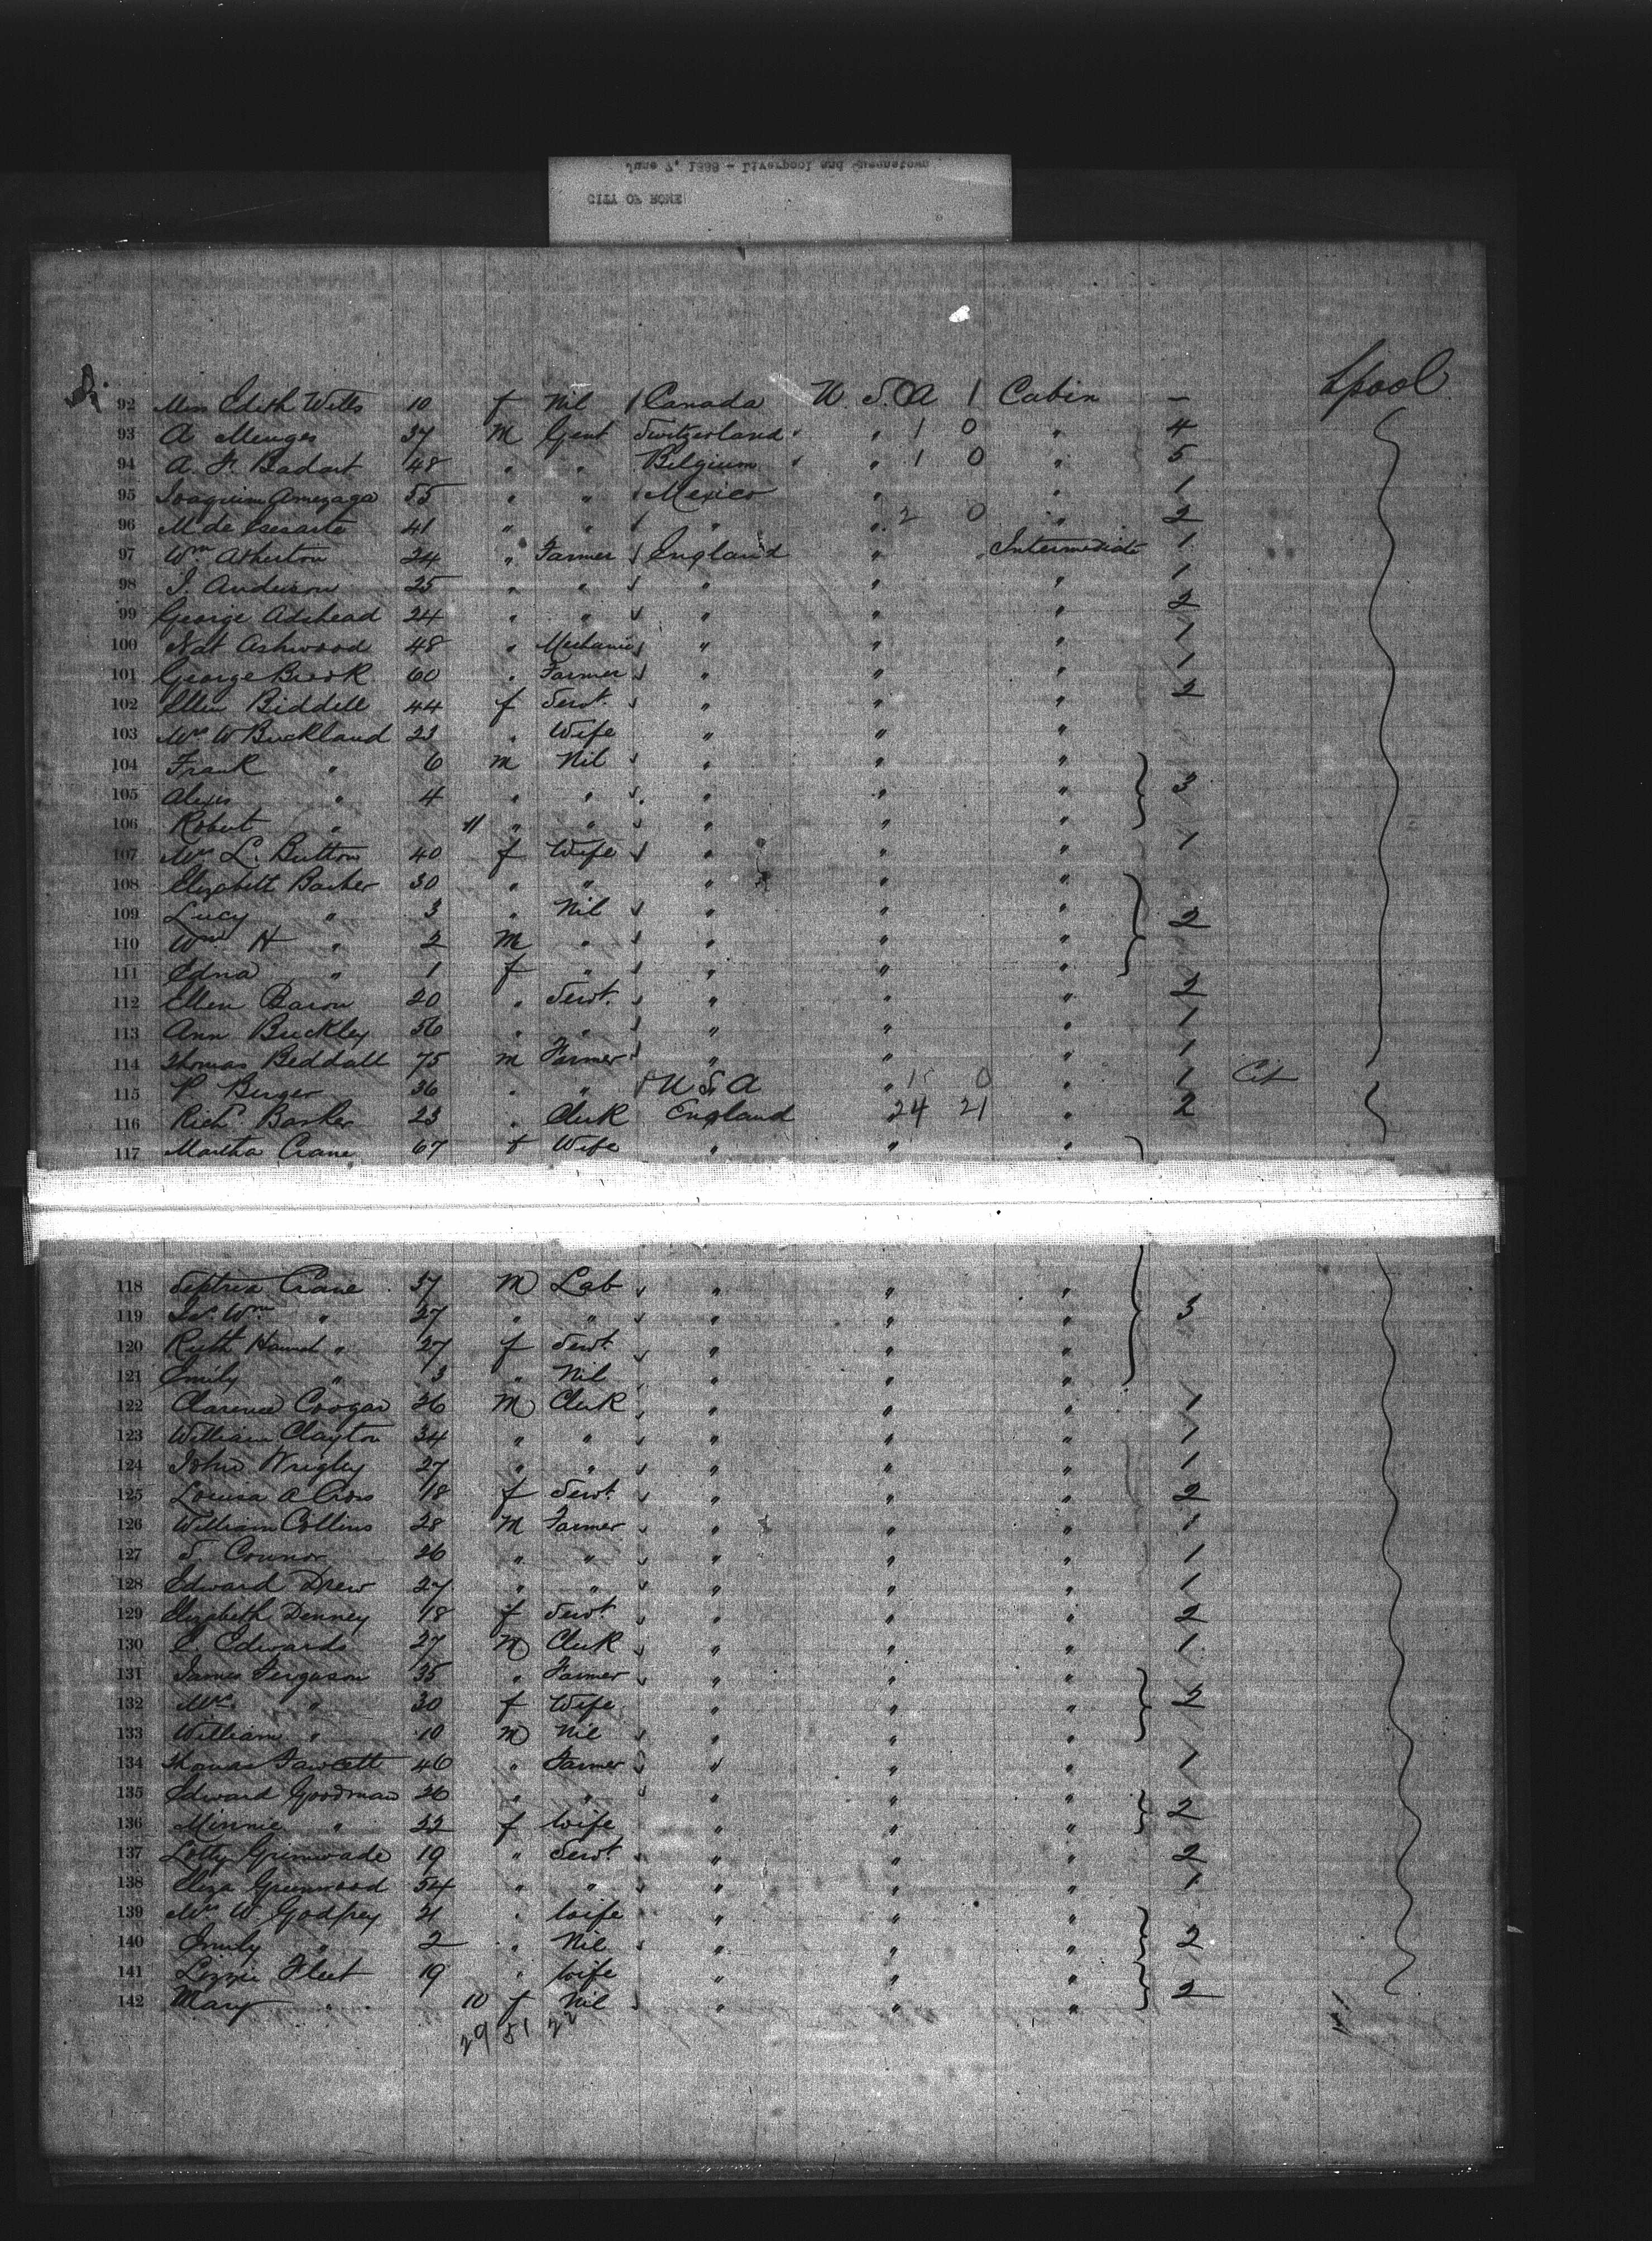 June 7, 1888 - Liverpool and Queenstown
CITY OF ROME
L'pool
92 Miss Edith Wells 10 f Nil / Canada U. S. A 1 Cabin —
93 A Menges 37 M Gent Switzerland " 1 0 " 4
94 A. F. Badart 48 " " Belgium " 1 0 " 5
95 Joaquim Amezaga 55 " " / Mexico " " 1
96 M de 41 " " / " " 2 0 " 2
97 Wm Atherton 24 " Farmer / England " Intermediate 1
98 J. Anderson 25 " " " " " 1
99 George Adshead 24 " " " " " 2
100 Nat Ashwood 48 " Mechanic " " " 1
101 George Brook 60 " Farmer " " " 1
102 Ellen Biddell 44 f Servt. " " " 2
103 Mrs W Buckland 23 " Wife " " "
104 Frank " 6 m Nil " " "
105 Alexis " 4 " " " " " 3
106 Robert " 11 " " " " "
107 Mrs L. Button 40 f Wife " " " 1
108 Elizabeth Barber 30 " " " " "
109 Lucy " 3 " Nil " " " 2
110 Wm H " 2 M " " " "
111 Edna " 1 f " " " "
112 Ellen Baron 20 " Servt. " " " 2
113 Ann Buckley 56 " " " " " 1
114 Thomas Beddall 75 m Farmer " " " 1
115 P. Berger 36 " " / U S A " 1 0 " 1 Cit
116 Richd Barker 23 " Clerk England " 24 21 " 2
117 Martha Crane 67 f Wife " " "
118 Crane 37 M Lab " " "
119 Wm " 27 " " " " " 3
120 Ruth Hannah " 27 f Servt " " "
121 Emily " 3 " Nil " " "
122 Clarence Coogan 26 M Clerk " " " 1
123 William Clayton 34 " " " " " 1
124 John Wrigley 27 " " " " " 1
125 Louisa A Cross 18 f Servt. " " " 2
126 William Collins 28 M Farmer " " " 1
127 S. Connor 26 " " " " " 1
128 Edward Drew 27 " " " " " 1
129 Elizabeth Denney 18 f Servt. " " " 2
130 C. Edwards 27 M Clerk " " " 1
131 James Ferguson 35 " Farmer " " "
132 Mrs " 30 f Wife " " " 2
133 William " 10 M Nil " " "
134 Thomas Fawcett 46 " Farmer " " " 1
135 Edward Goodman 26 " " " " "
136 Minnie " 22 f Wife " " " 2
137 Lotty Grimwade 19 " Servt " " " 2
138 Eliza Greenwood 54 " " " " " 1
139 Mrs W. Godfrey 21 " Wife " " "
140 Emily " 2 " Nil " " " 2
141 Lizzie Fleet 19 " Wife " " "
142 Mary " 10 f Nil " " " 2
29 51 22